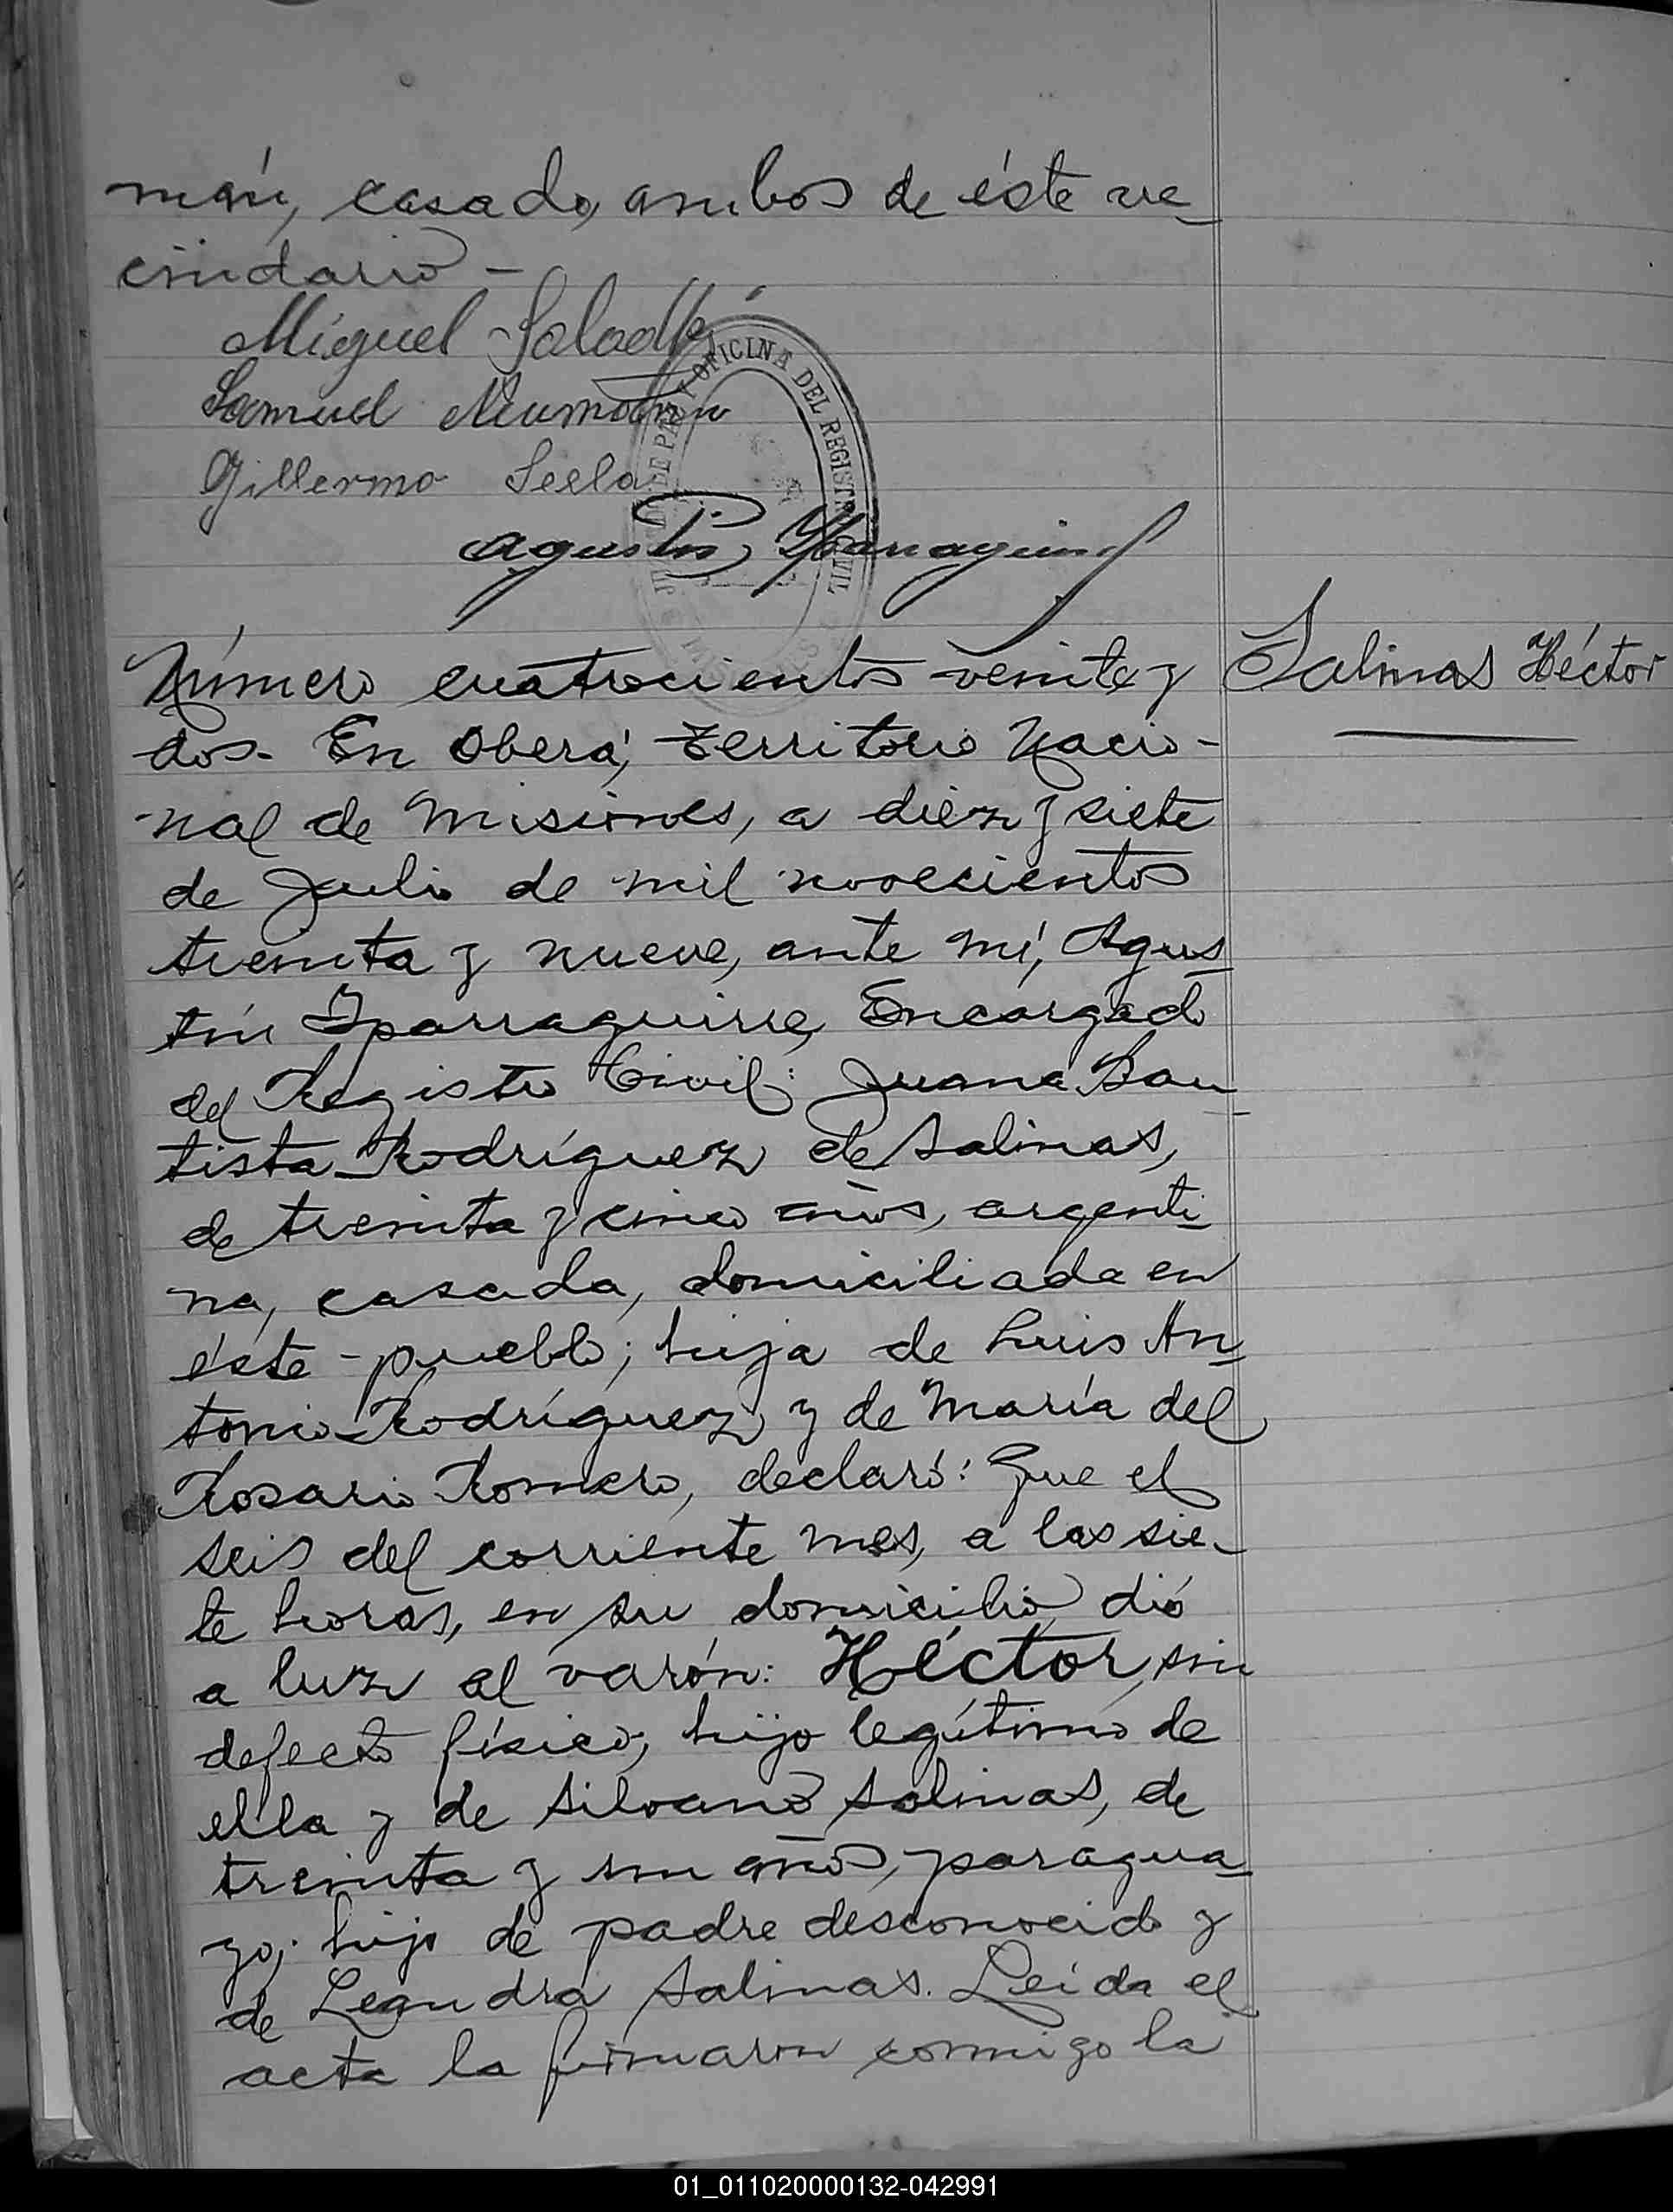 mán, casado, ambos de éste ve_
cindario -
Miguel
Samuel Neumann
Gillermo Seela
OFICINA DEL REGISTRO CIVIL
Agustín Yparraguirre
Número cuatrocientos veinte y
Salinas Héctor
dos- En Oberá, Territorio Nacio-
nal de Misiones, a diez y siete
de Julio de mil novecientos
treinta y nueve, ante mí, Agus_
tín Yparraguirre, Encargado
del Registro Civil: Juana Bau_
tista Rodríguez de Salinas,
de treinta y cinco años, argenti_
na, casada, domiciliada en
éste pueblo; hija de Luis An_
tonio Rodríguez y de María del
Rosario Romero, declaró: Que el
seis del corriente mes, a las sie_
te horas, en su domicilio dió
a luz al varón: Héctor, sin
defecto físico; hijo legítimo de
ella y de Silvano Salinas, de
treinta y un años, paragua_
yo; hijo de padre desconocido y
de Leandra Salinas. Leída el
acta la firmaron conmigo la
01_011020000132-042991